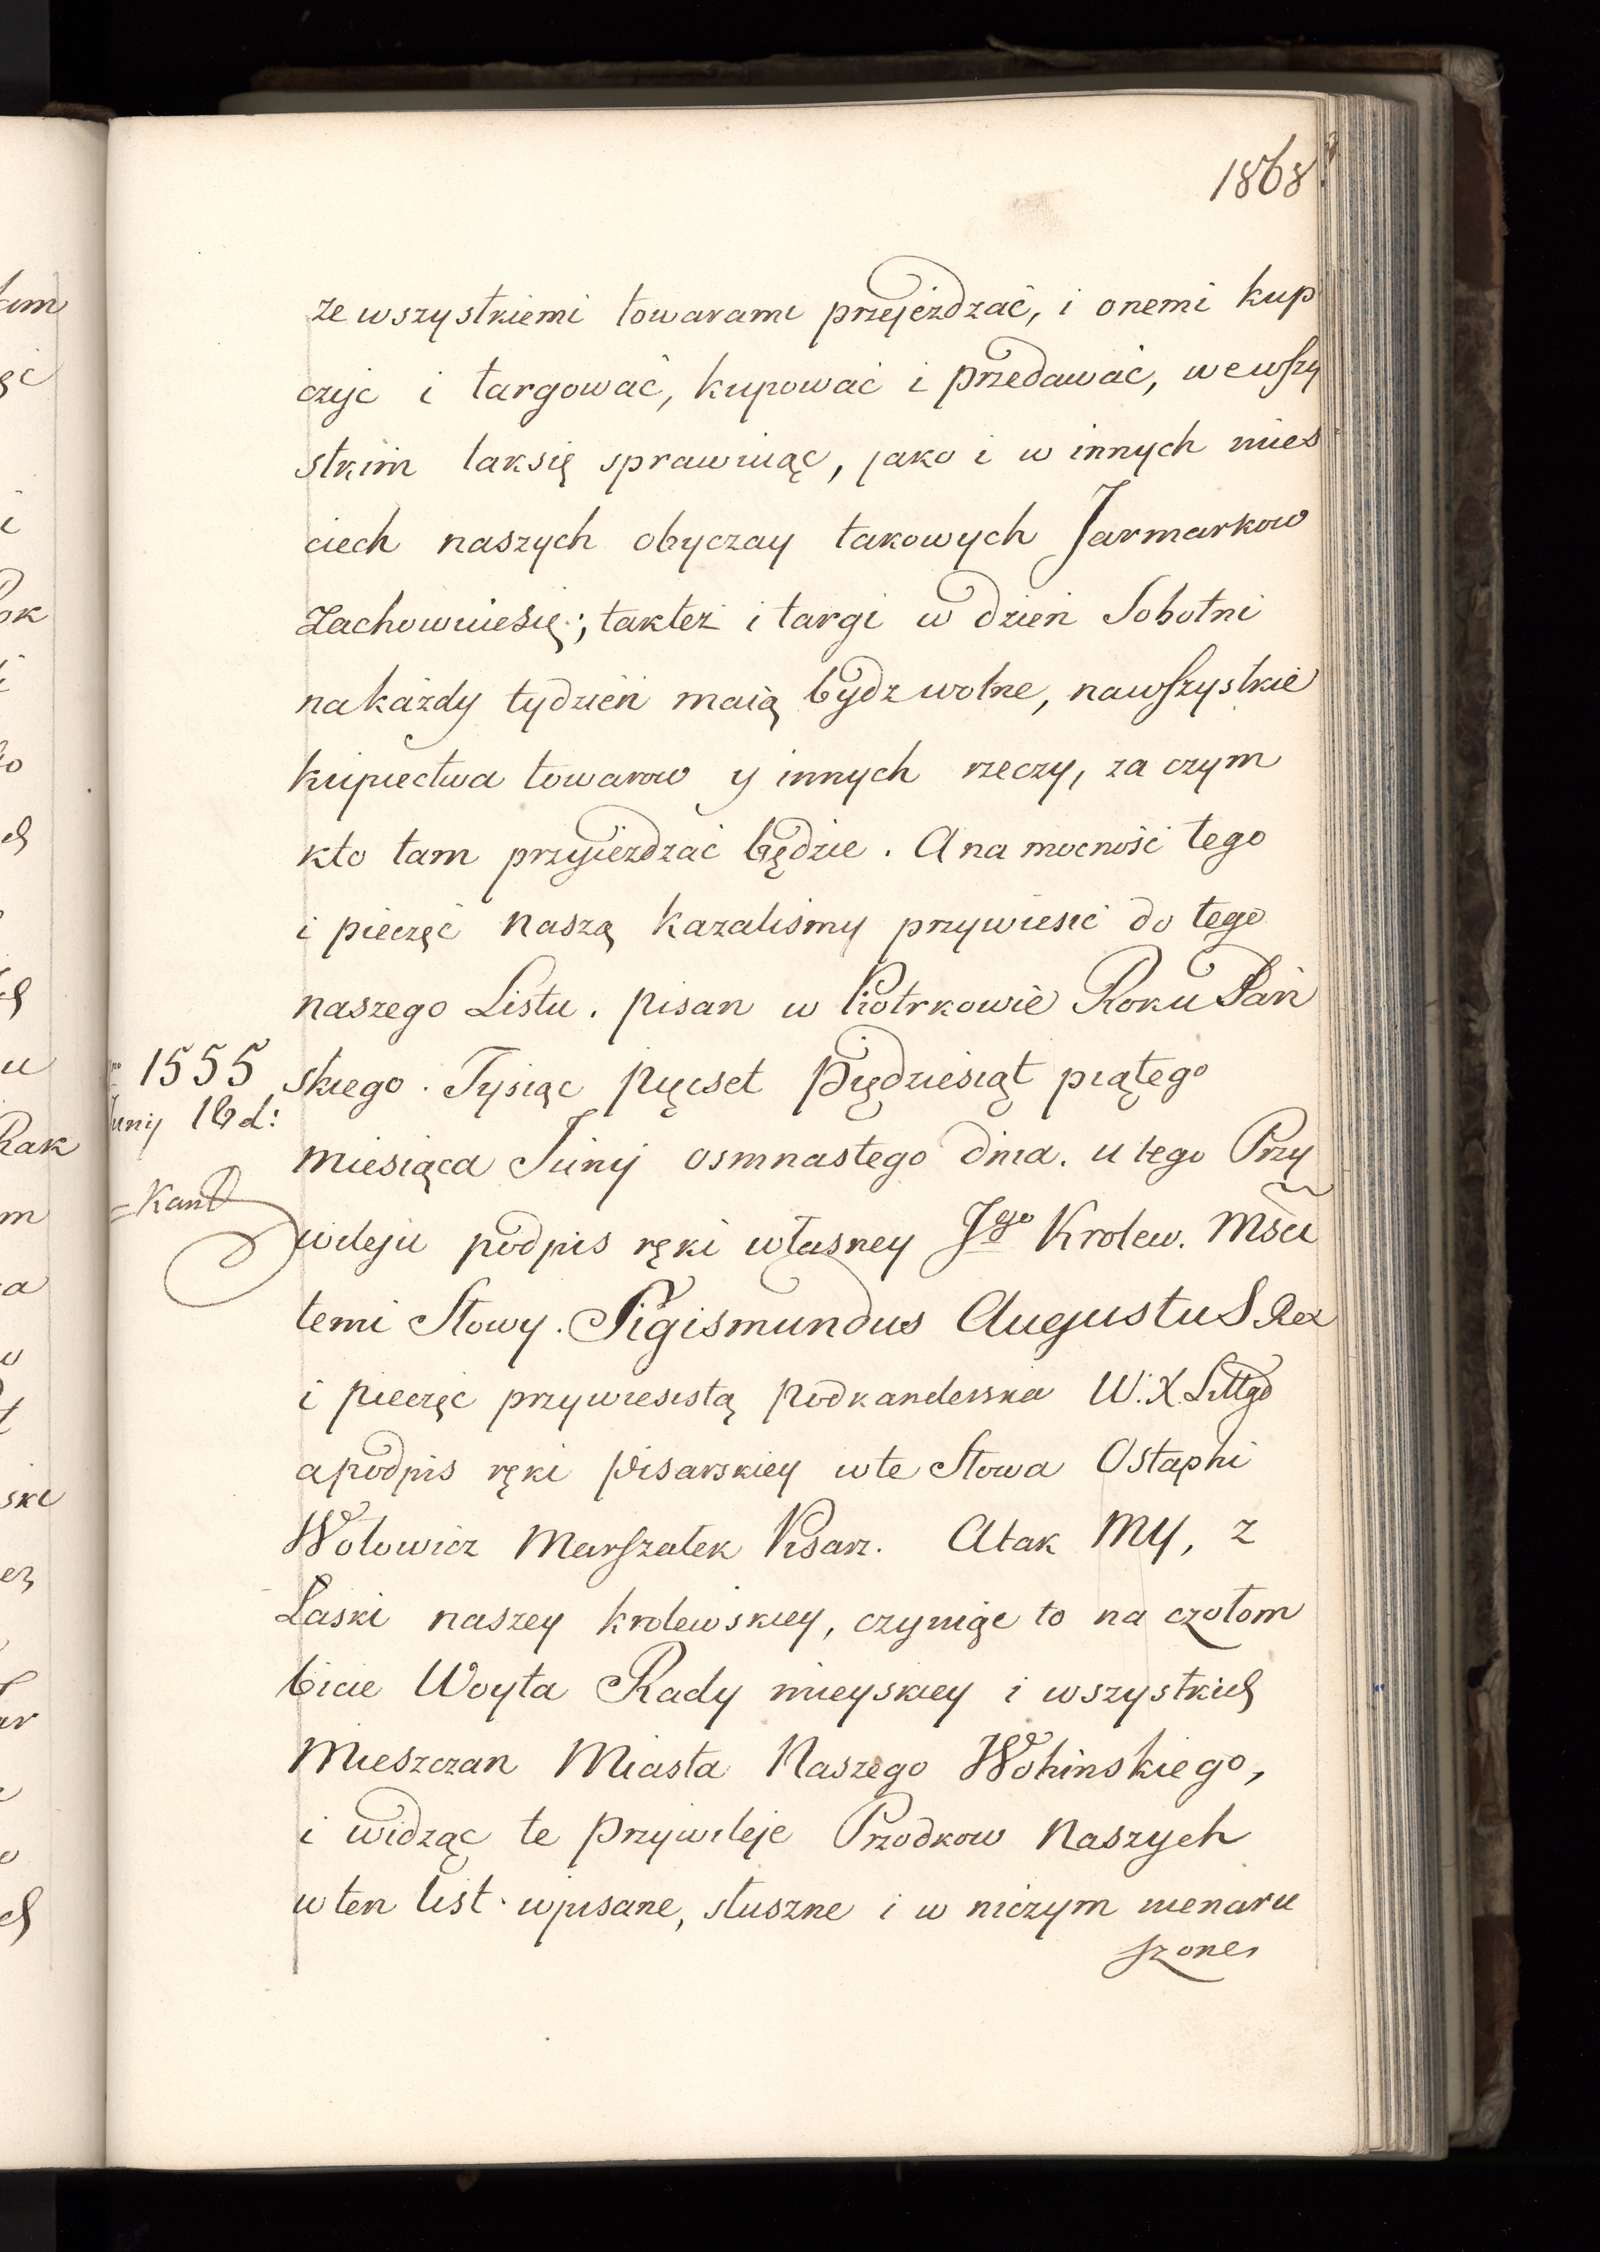 1868
ze wszystkiemi towarami przejeżdzać, i onemi kup
czyc i targować, kupować i przedawać, wewszy
stkim taksię sprawuiąc, jako i w innych mies
ciech naszych obyczay takowych Jarmarkow
Zachowuiesię; takteż i targi w dzień Sobotni
nakażdy tydzień maią bydz wolne, nawszystkie
kupiectwa towarow y innych rzeczy, za czym
kto tam przyieżdzać będzie. A na mocność tego
i pieczęć naszą kazaliśmy przywiesić do tego
naszego Listu. pisan w Piotrkowie Roku Pań
1555 skiego. Tysiąc pięcset piędziesiąt piątego
Juny 18 d:
miesiąca Juny osmnastego dnia. u tego Przy
=Kant
wileju podpis ręki własney Jego Krolew. Mści
temi Słowy. Sigismundus Augustus Rex
i pieczęć przywiesistą podkanclerska W. X. Littgo
apodpis ręki pisarskiey wte Słowa Ostaphi
Wołowicz Marszałek Pisarz. Atak My, z
Łaski naszey krolewskiey, czyniąc to na czołom
bicie Woyta Rady mieyskiey i wszystkich
Mieszczan Miasta Naszego Wohinskiego,
i widząc te przywileje Przodkow Naszych
w ten list wpisane, słuszne i w niczym nienaru
szone,